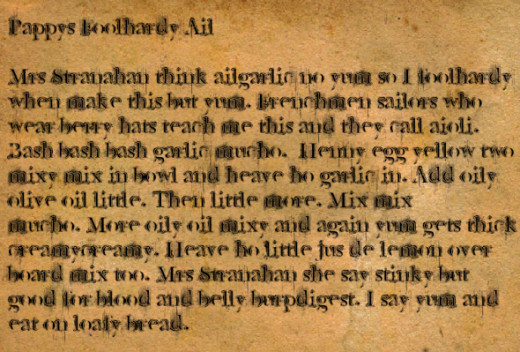 Pappys Foolhardy Ail
Mrs Stranahan think ailgarlic no yum so I foolhardy
when make this but yum. Frenchmen sailors who
wear berry hats teach me this and they call aioli.
Bash bash bash garlic mucho. Henny egg yellow two
mixy mix in bowl and heave ho garlic in. Add oily
olive oil little. Then little more. Mix mix
mucho. More oily oil mixy and again yum gets thick
creamycreamy. Heave ho little jus de lemon over
board mix too. Mrs Stranahan she say stinky but
good for blood and belly burpdigest. I say yum and
eat on loafy bread.